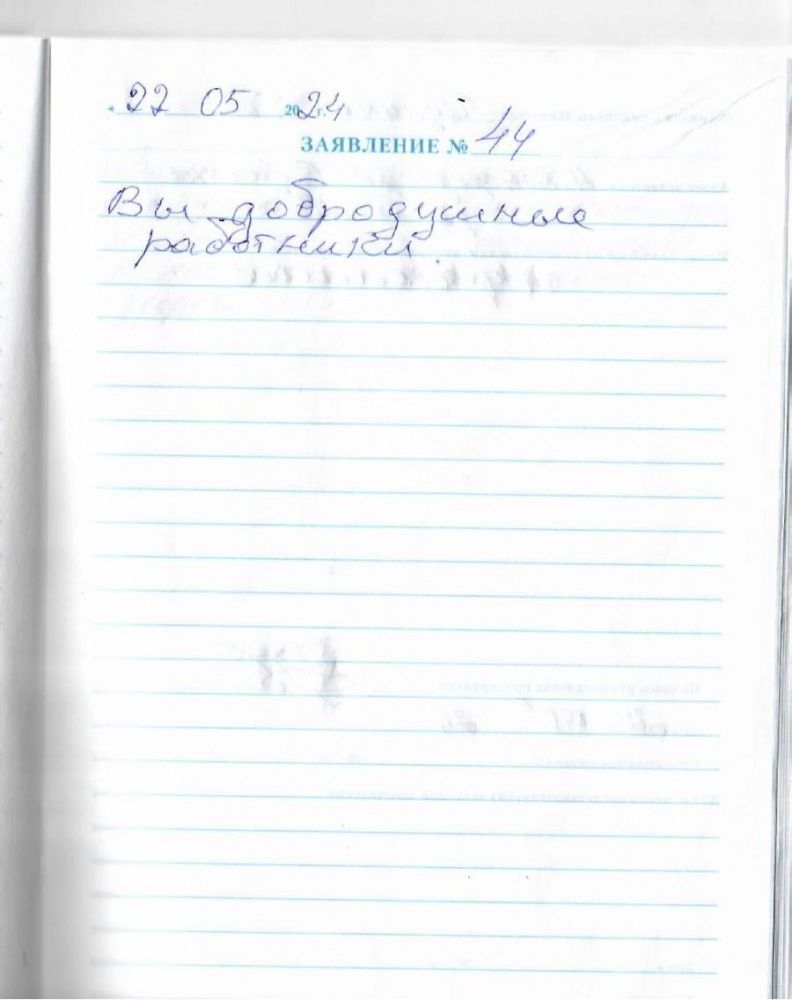 « 22 05 2024 г.
ЗАЯВЛЕНИЕ № 44
Вы добродушные
работники.